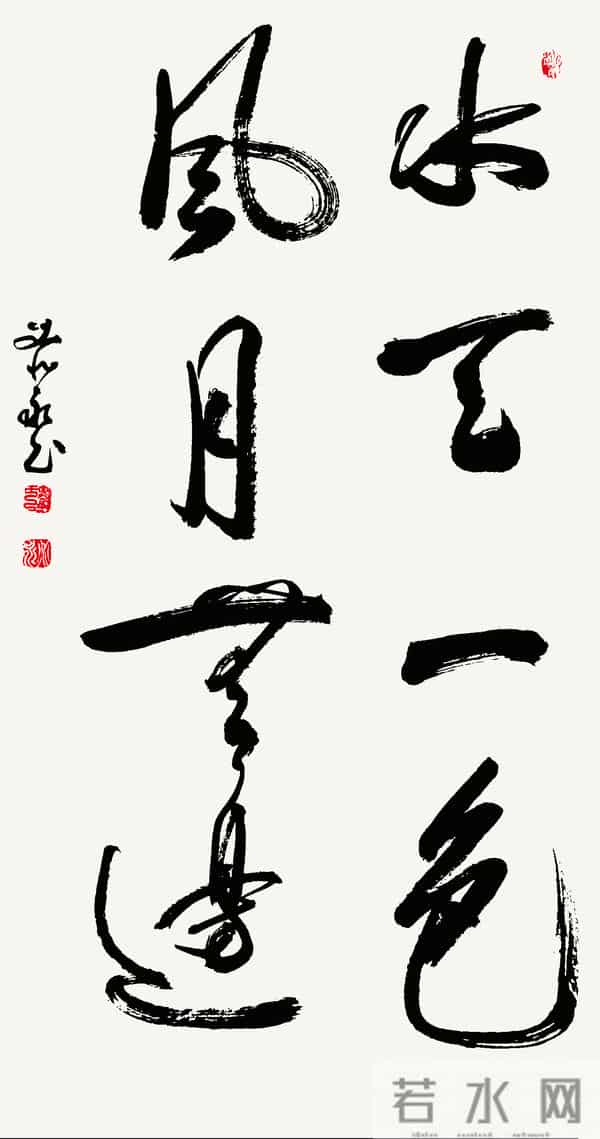 水天一色
風月無邊
若水网